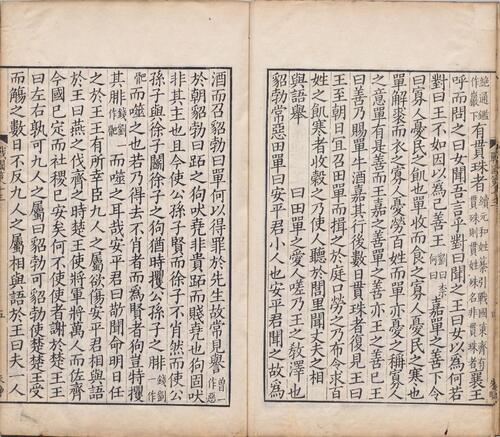 作巖下有貫珠者續元和姓纂引戰國策齊有貫珠則貫姓珠名非貫珠者襄王
呼而問之曰女聞吾言乎對曰聞之王曰女以爲何若
對曰王不如因以爲己善王嘉單之善下令
曰寡人憂民之飢也單收而食之寡人憂民之寒也
單解裘而衣之寡人憂勞百姓而單亦憂之稱寡人
之意單有是善而王嘉之善單之善亦王之善已王
曰善乃賜單牛酒嘉其行後數日貫珠者復見王曰
王至朝日宜召田單而揖之於庭口勞之乃布令求百
姓之飢寒者收穀之乃使人聽於閭里聞丈夫之相
與語舉 曰田單之愛人嗟乃王之敎澤也
貂勃常惡田單曰安平君小人也安平君聞之故爲
酒而召貂勃曰單何以得罪於先生故常見譽曾一作惡
於朝貂勃曰跖之狗吠堯非貴跖而賤堯也狗固吠
非其主也且今使公孫子賢而徐子不肖然而使公
孫子與徐子鬬徐子之狗猶時攫公孫子之腓
而噬之也若乃得去不肖者而爲賢者狗豈特攫
其腓錢劉作肥而噬之耳哉安平君曰敬聞命明日任
之於王王有所幸臣九人之屬欲傷安平君相與語
於王曰燕之伐齊之時楚王使將軍將萬人而佐齊
今國已定而社稷已安矣何不使使者謝於楚王王
曰左右孰可九人之屬曰貂勃可貂勃使楚楚王受
而觴之數日不反九人之屬相與語於王曰夫一人